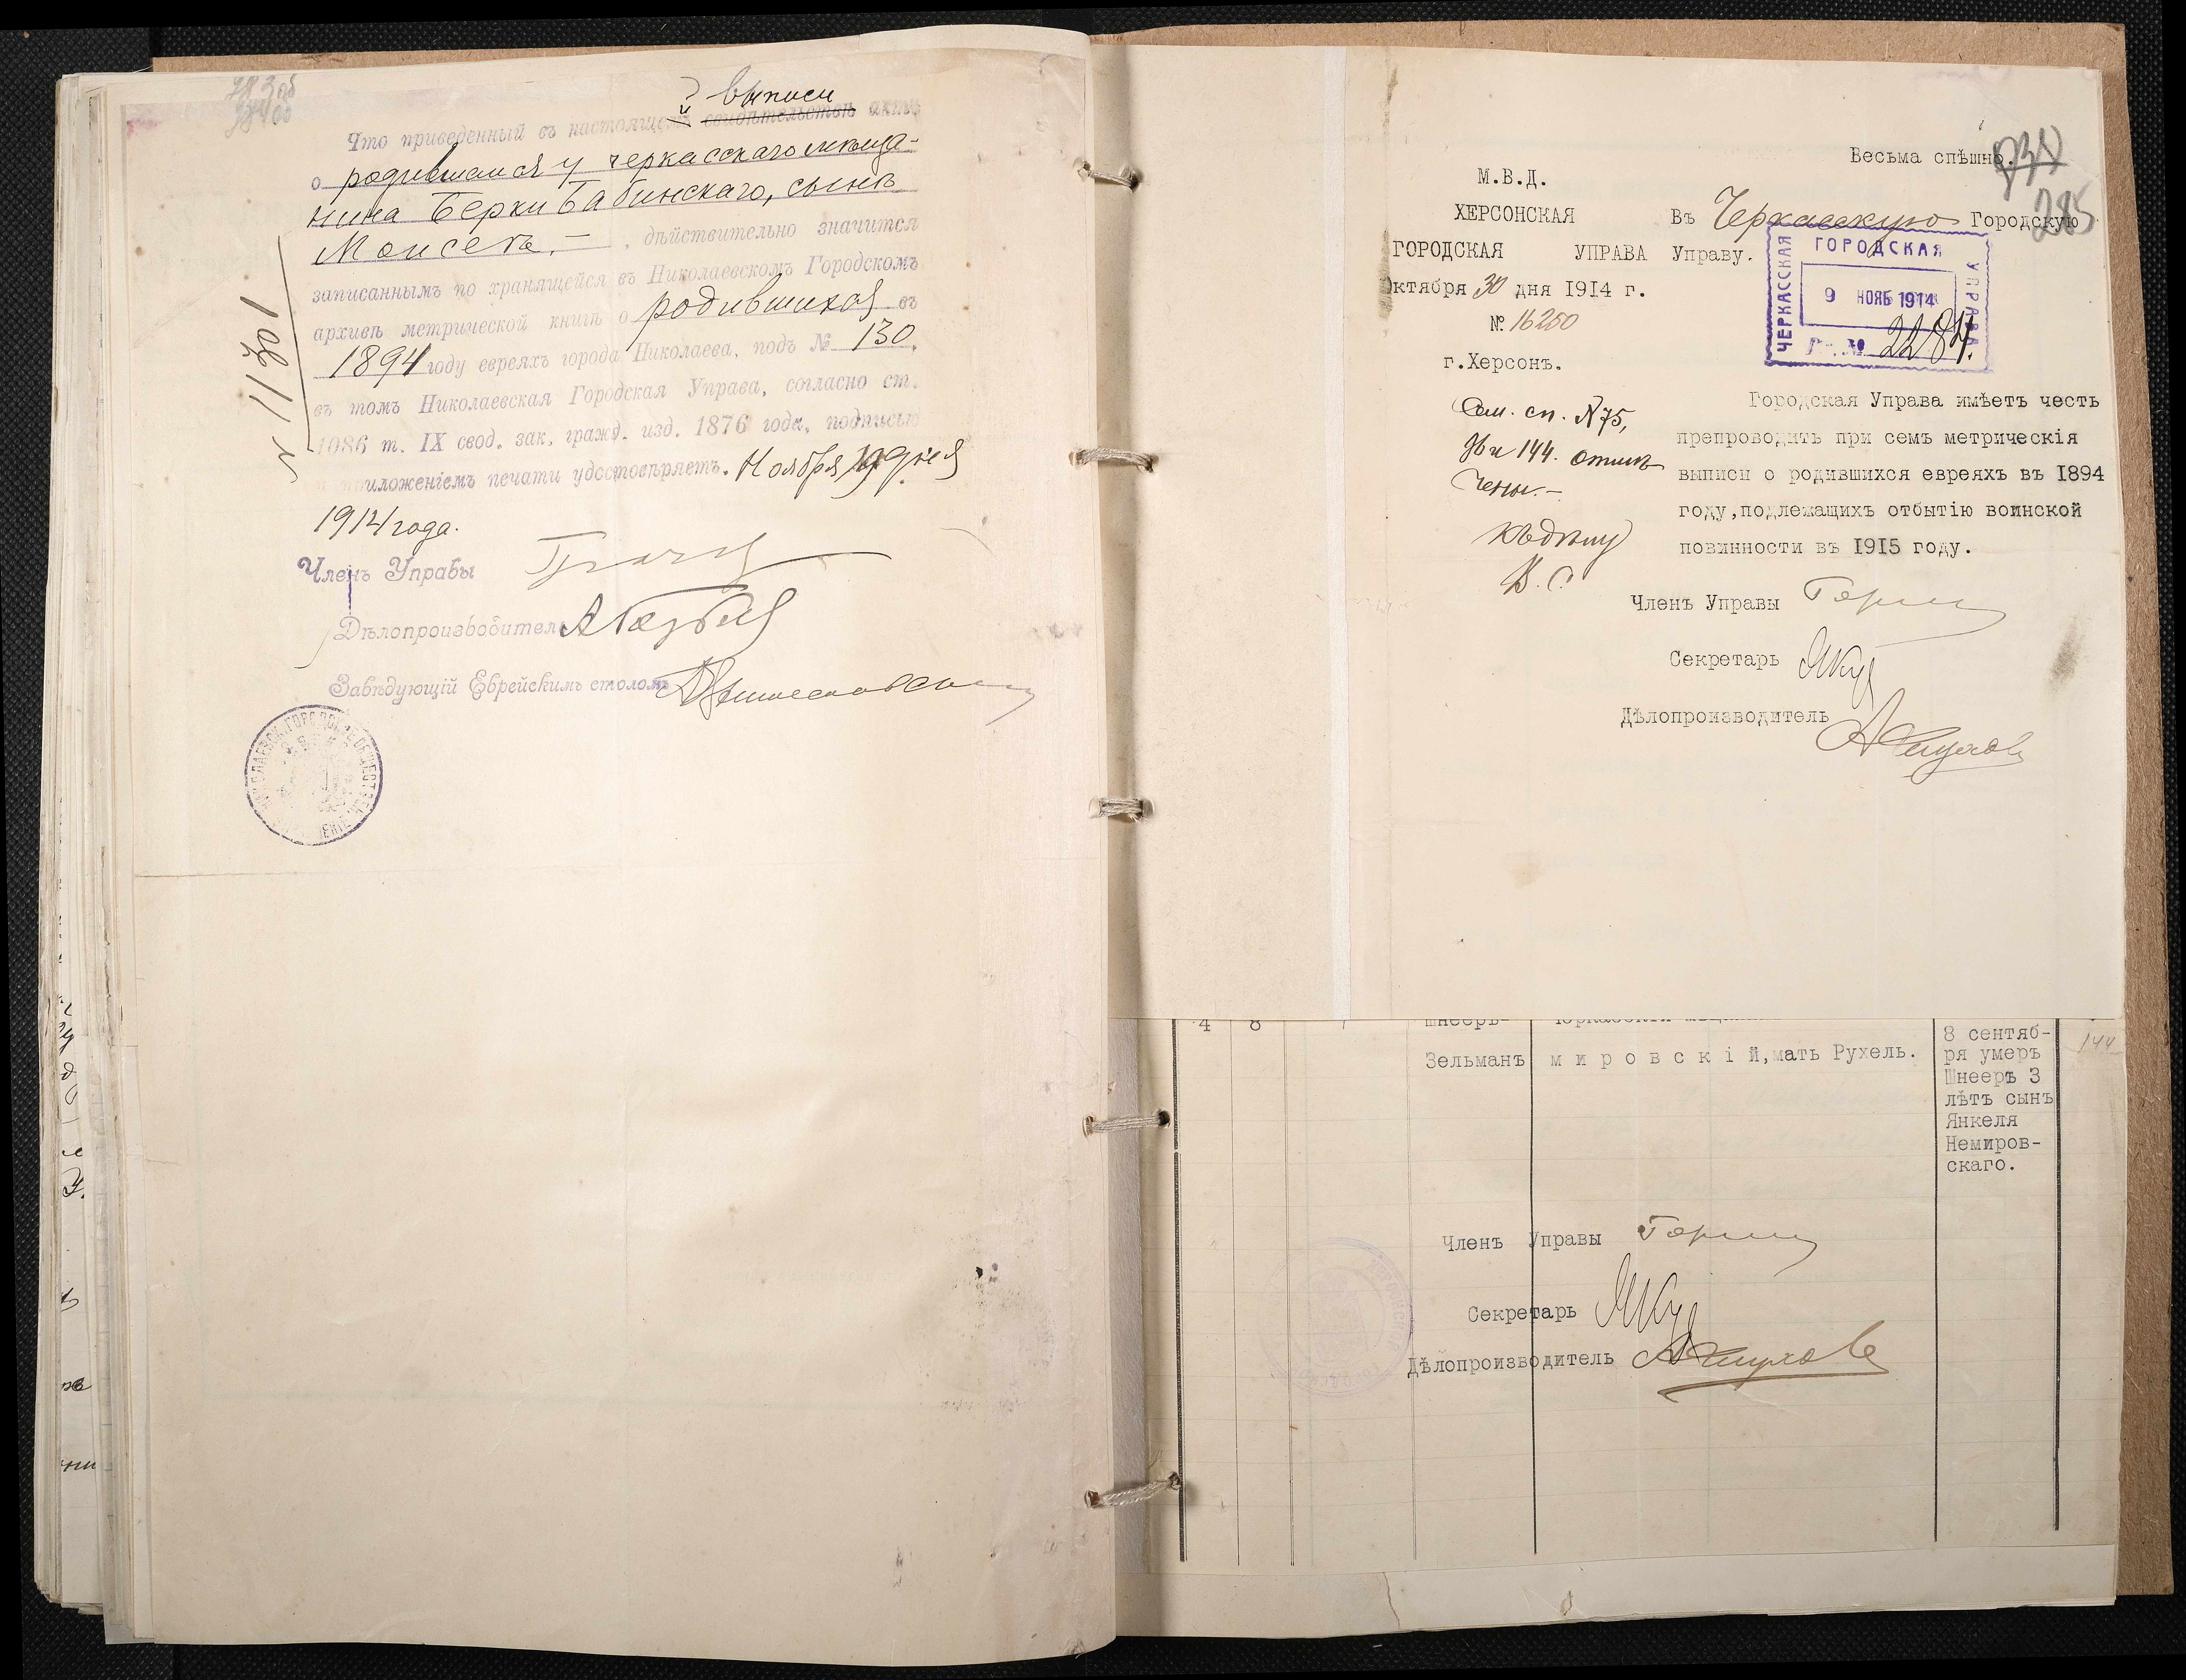 выписи
Что приведенный въ настоящей свидѣтельствѣ актѣ
о родившемся у черкасскаго мѣща-
нина Берки Бабинскаго, сынѣ
Моисеѣ, – , дѣйствительно значится
записаннымъ по хранящейся въ Николаевскомъ Городскомъ
архивѣ метрической книгѣ о родившихся въ
1894 году евреяхъ города Николаева, подъ № 130,
въ томъ Николаевская Городская Управа, согласно ст.
1086 т. IX свод. зак. гражд. изд. 1876 года, подписью
и приложеніемъ печати удостовѣряетъ. Ноября 19 дня
1914 года.
№ 11701
Членъ Управы
Дѣлопроизводитель
Завѣдующій Еврейскимъ столомъ
Весьма спѣшно.
285
М.В.Д.
ХЕРСОНСКАЯ
ГОРОДСКАЯ УПРАВА
Октября 30 дня 1914 г.
№ 16250
г.Херсонъ.
Въ Черкасскую Городскую
Управу.
ЧЕРКАССКАЯ ГОРОДСКАЯ УПРАВА
9 НОЯБ 1914
Сем. сп. № 75,
и 144. отмѣ-
чены.–
Городская Управа имѣетъ честь
препроводить при семъ метрическія
выписи о родившихся евреяхъ въ 1894
году,подлежащихъ отбытію воинской
повинности въ 1915 году.
Членъ Управы
Секретарь
Дѣлопроизводитель
4 8 7 Шнееръ-
Зельманъ мировскій,мать Рухель.
8 сентяб-
ря умеръ
Шнееръ 3
лѣтъ сынъ
Янкеля
Немиров-
скаго.
144
Членъ Управы
Секретарь
Дѣлопроизводитель